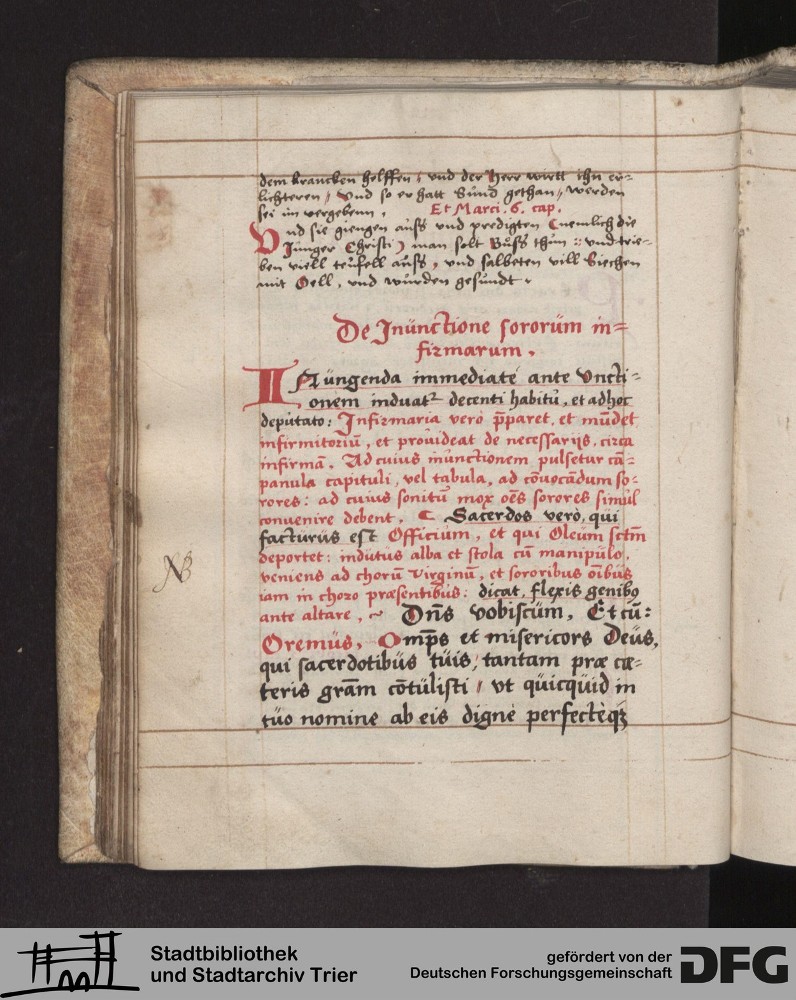 dem krancken helffen, und der Herr wirtt ihn er=
lichteren, Und so er hatt Sünd gethan, werden
sei im vergebenn. Et Marci. 6. cap.
Und sie giengen auss und predigten (nemlich die
Jünger Christi) man solt Buss thun :: und trie=
ben viell teufell auss, und salbeten vill Siechen
mit Oell, und wurden gesundt.
De Inunctione sororum in=
firmarum.
INungenda immediatè ante Uncti=
onem induatr decenti habitu, et adhoc
deputato: Infirmaria vero p̄paret, et mūdet
infirmitoriū, et prouideat de necessarijs, circa
infirmā. Ad cuius inunctionem pulsetur cā=
panula capituli, vel tabula, ad cōuocādum so=
rores: ad cuius sonitū mox oēs sorores simul
conuenire debent. Sacerdos verò, qui
facturus est Officium, et qui Oleum sctm
deportet: indutus alba et stola cū manipulo,
veniens ad chorū Virginū, et sororibus oībus
iam in choro præsentibus: dicat, flexis genibꝰ
ante altare, ~ Dn̄s vobiscum, Et cū:
Oremus, Omp̄s et misericors Deus,
qui sacerdotibus tuis, tantam præ cæ=
teris grām cōtulisti, vt quicquid in
tuo nomine ab eis dignè perfectèqꝫ
NB
Stadtbibliothek
und Stadtarchiv Trier
gefördert von der
Deutschen Forschungsgemeinschaft
DFG